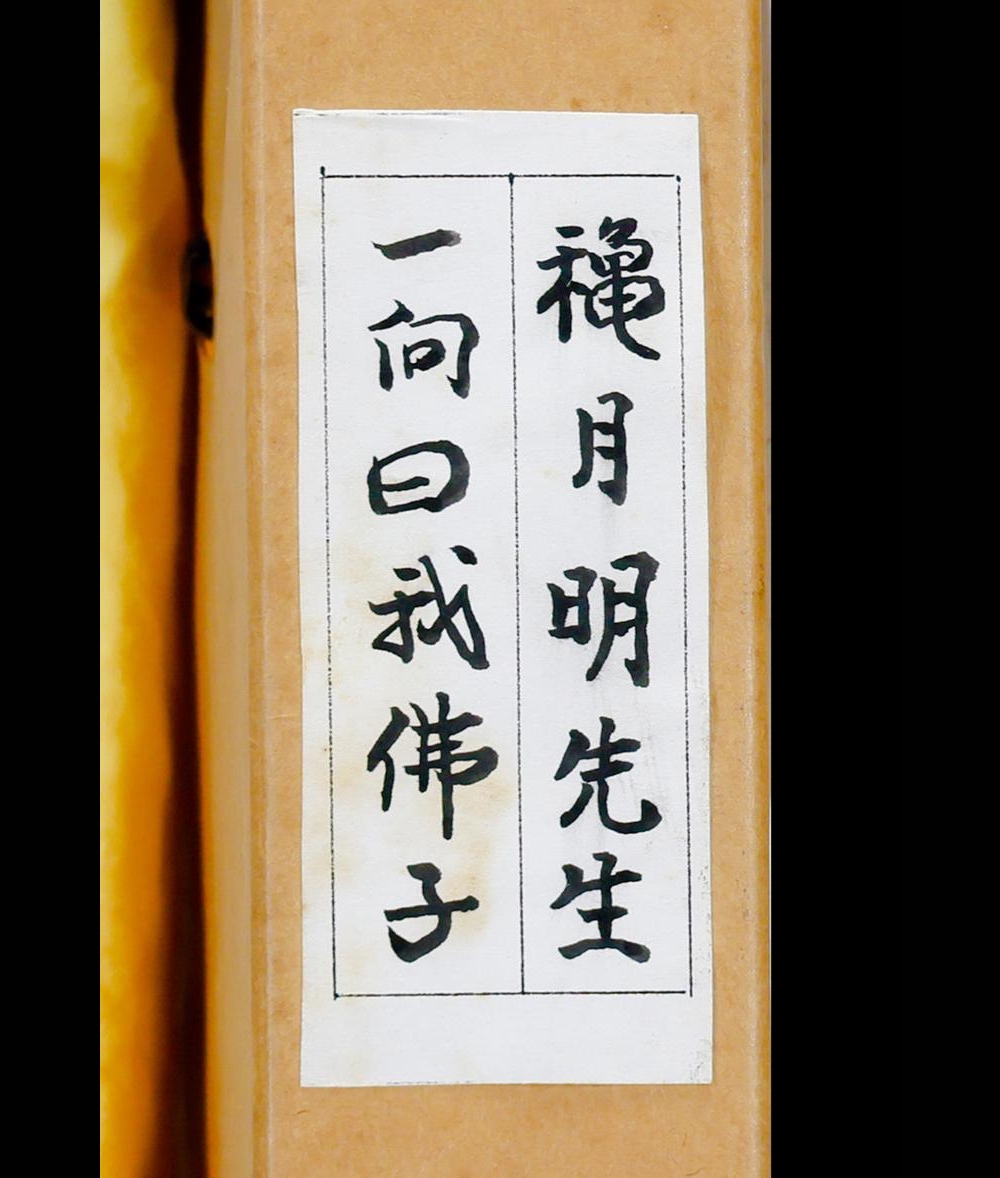 穐月明先生
一向曰我佛子